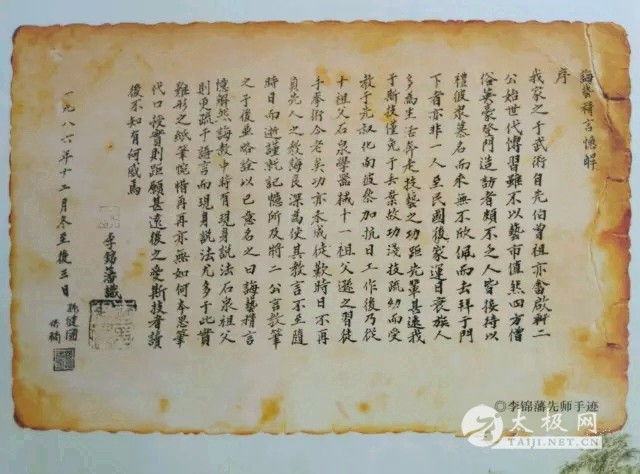 誨藝精言憶解
序
我家之于武術自先伯曾祖亦畬啟軒二
公始世代博習雖不以藝市值然四方僧
俗英豪登門造訪者頗不乏人皆接待以
禮彼眾慕名而來無不欣佩而去拜于門
下者亦非一人至民國後家運日衰族人
多為生活奔走技藝之功距先輩甚遠我
于斯技僅免于去業故功淺技疏幼而受
教于先叔化南彼參加抗日工作後乃從
十祖父石泉學器械十一祖父遜之習徒
手拳術今老矣功亦未成徒歎時日不再
負先人之教誨良深為使其教言不至隨
時日而逝謹就記憶所及將二公言教筆
之于後並略詮以己意名之曰誨藝精言
憶解然誨教中時有現身說法石泉祖父
則更疏于語言而現身說法尤多于此實
難形之紙筆惋惜再再亦無如何本思筆
代口授實則距願甚遠後之愛斯技者讀
後不知有何感焉
一九八六年十二月冬至後三日
李錦藩識
孫健國
供稿
◎李锦藩先师手迹
太极网
TAIJI.NET.CN